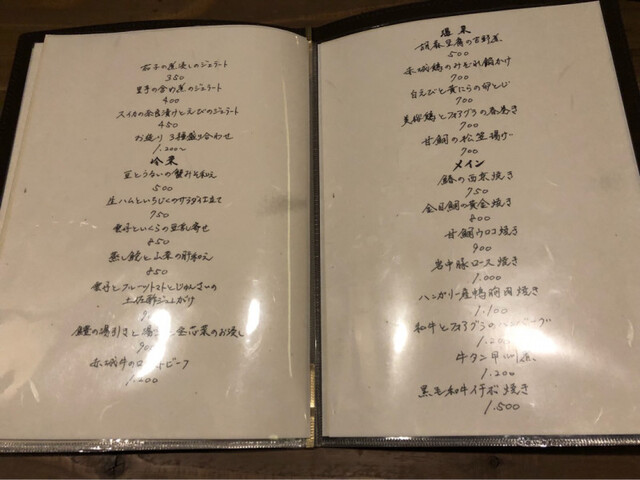 茄子の煮浸しのジュラート
350
里芋の含め煮のジェラート
400
スイカの奈良漬けとえびのジェラート
450
お造り 3種盛り合わせ
1.200〜
冷菜
豆とうるいの蟹みそ和え
500
生ハムといちじくのサラダ仕立て
750
いくらの豆乳寄せ
850
蒸し鮑と山菜の肝和え
850
フルーツトマトとじゅんさいの
土佐酢ジュレがけ
金針菜のお浸し
900
赤城牛のローストビーフ
1.200
温菜
胡麻豆腐の吉野煮
500
赤城鶏のみぞれ餡かけ
700
白えびと黄にらの卵とじ
700
美桜鶏とフォアグラの春巻き
700
甘鯛の松笠揚げ
700
メイン
鰆の西京焼き
750
金目鯛の黄金焼き
800
甘鯛ウロコ焼き
900
岩中豚ロース焼き
1.000
ハンガリー産鴨胸肉焼き
1.100
和牛とフォアグラのハンバーグ
1.200
牛タン
1.200
黒毛和牛イチボ焼き
1.500